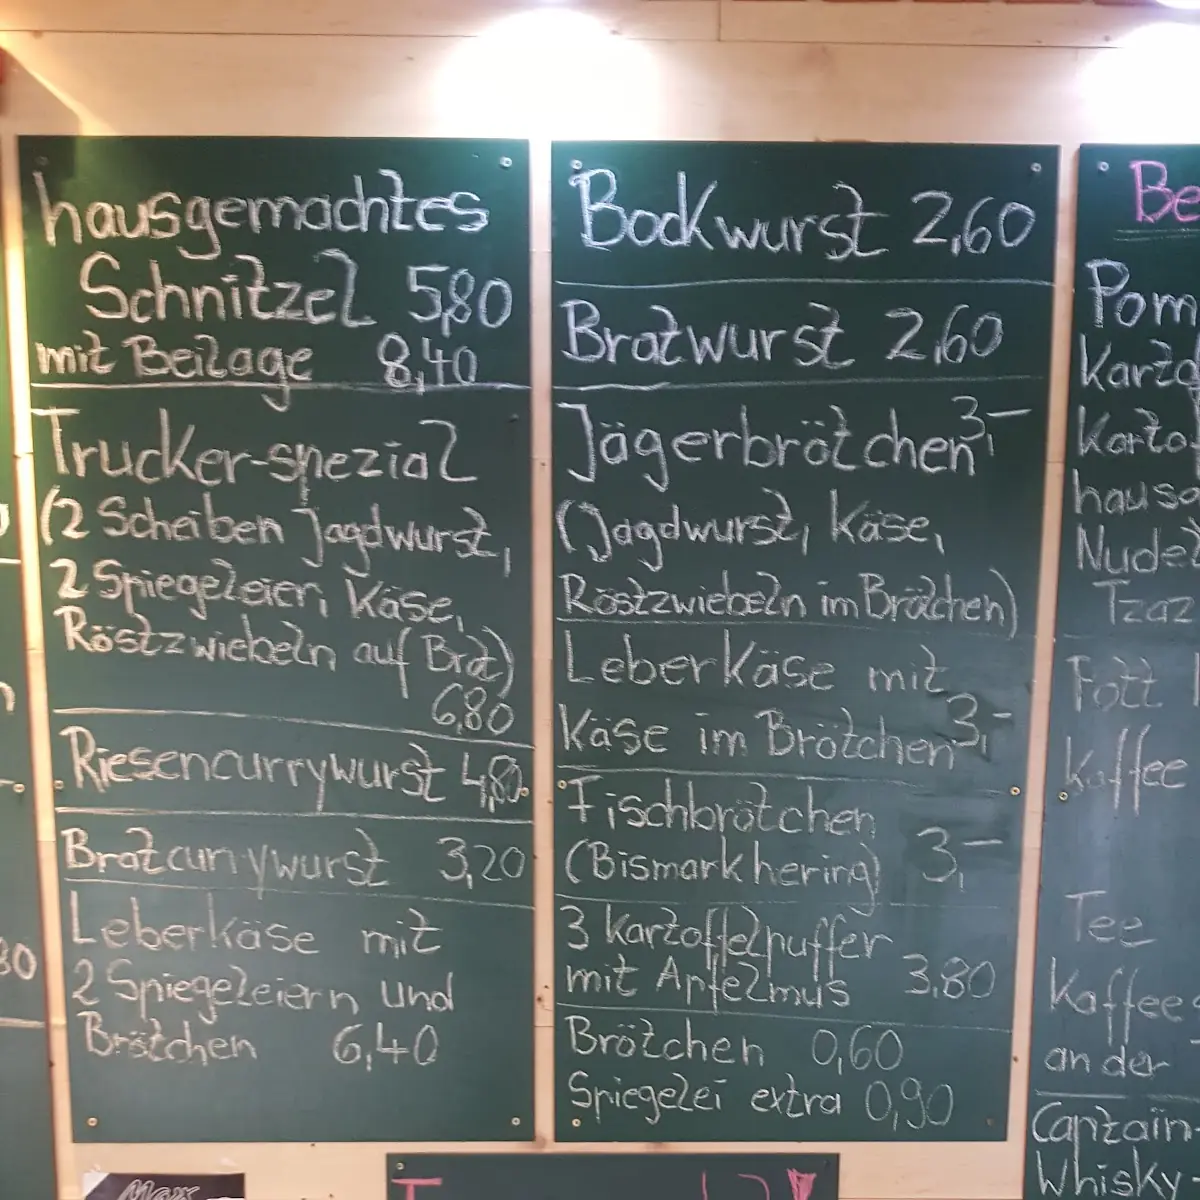 hausgemachtes
Schnitzel 5,80
mit Beilage 8,40
Trucker-spezial
(2 Scheiben Jagdwurst,
2 Spiegeleier, Käse,
Röstzwiebeln auf Brot)
6,80
Riesencurrywurst 4,80
Bratcurrywurst 3,20
Leberkäse mit
2 Spiegeleiern und
Brötchen 6,40
Bockwurst 2,60
Bratwurst 2,60
Jägerbrötchen 3,-
(Jagdwurst, Käse,
Röstzwiebeln im Brötchen)
Leberkäse mit
Käse im Brötchen 3,-
Fischbrötchen
(Bismarkhering) 3,-
3 Kartoffelpuffer
mit Apfelmus 3,80
Brötchen 0,60
Spiegelei extra 0,90
Be
Pom
Karto
Karto
hausg
Nudel
Tzaz
Pott
Kaffee
Tee
Kaffee
an der
Captain-
Whisky
80
Max